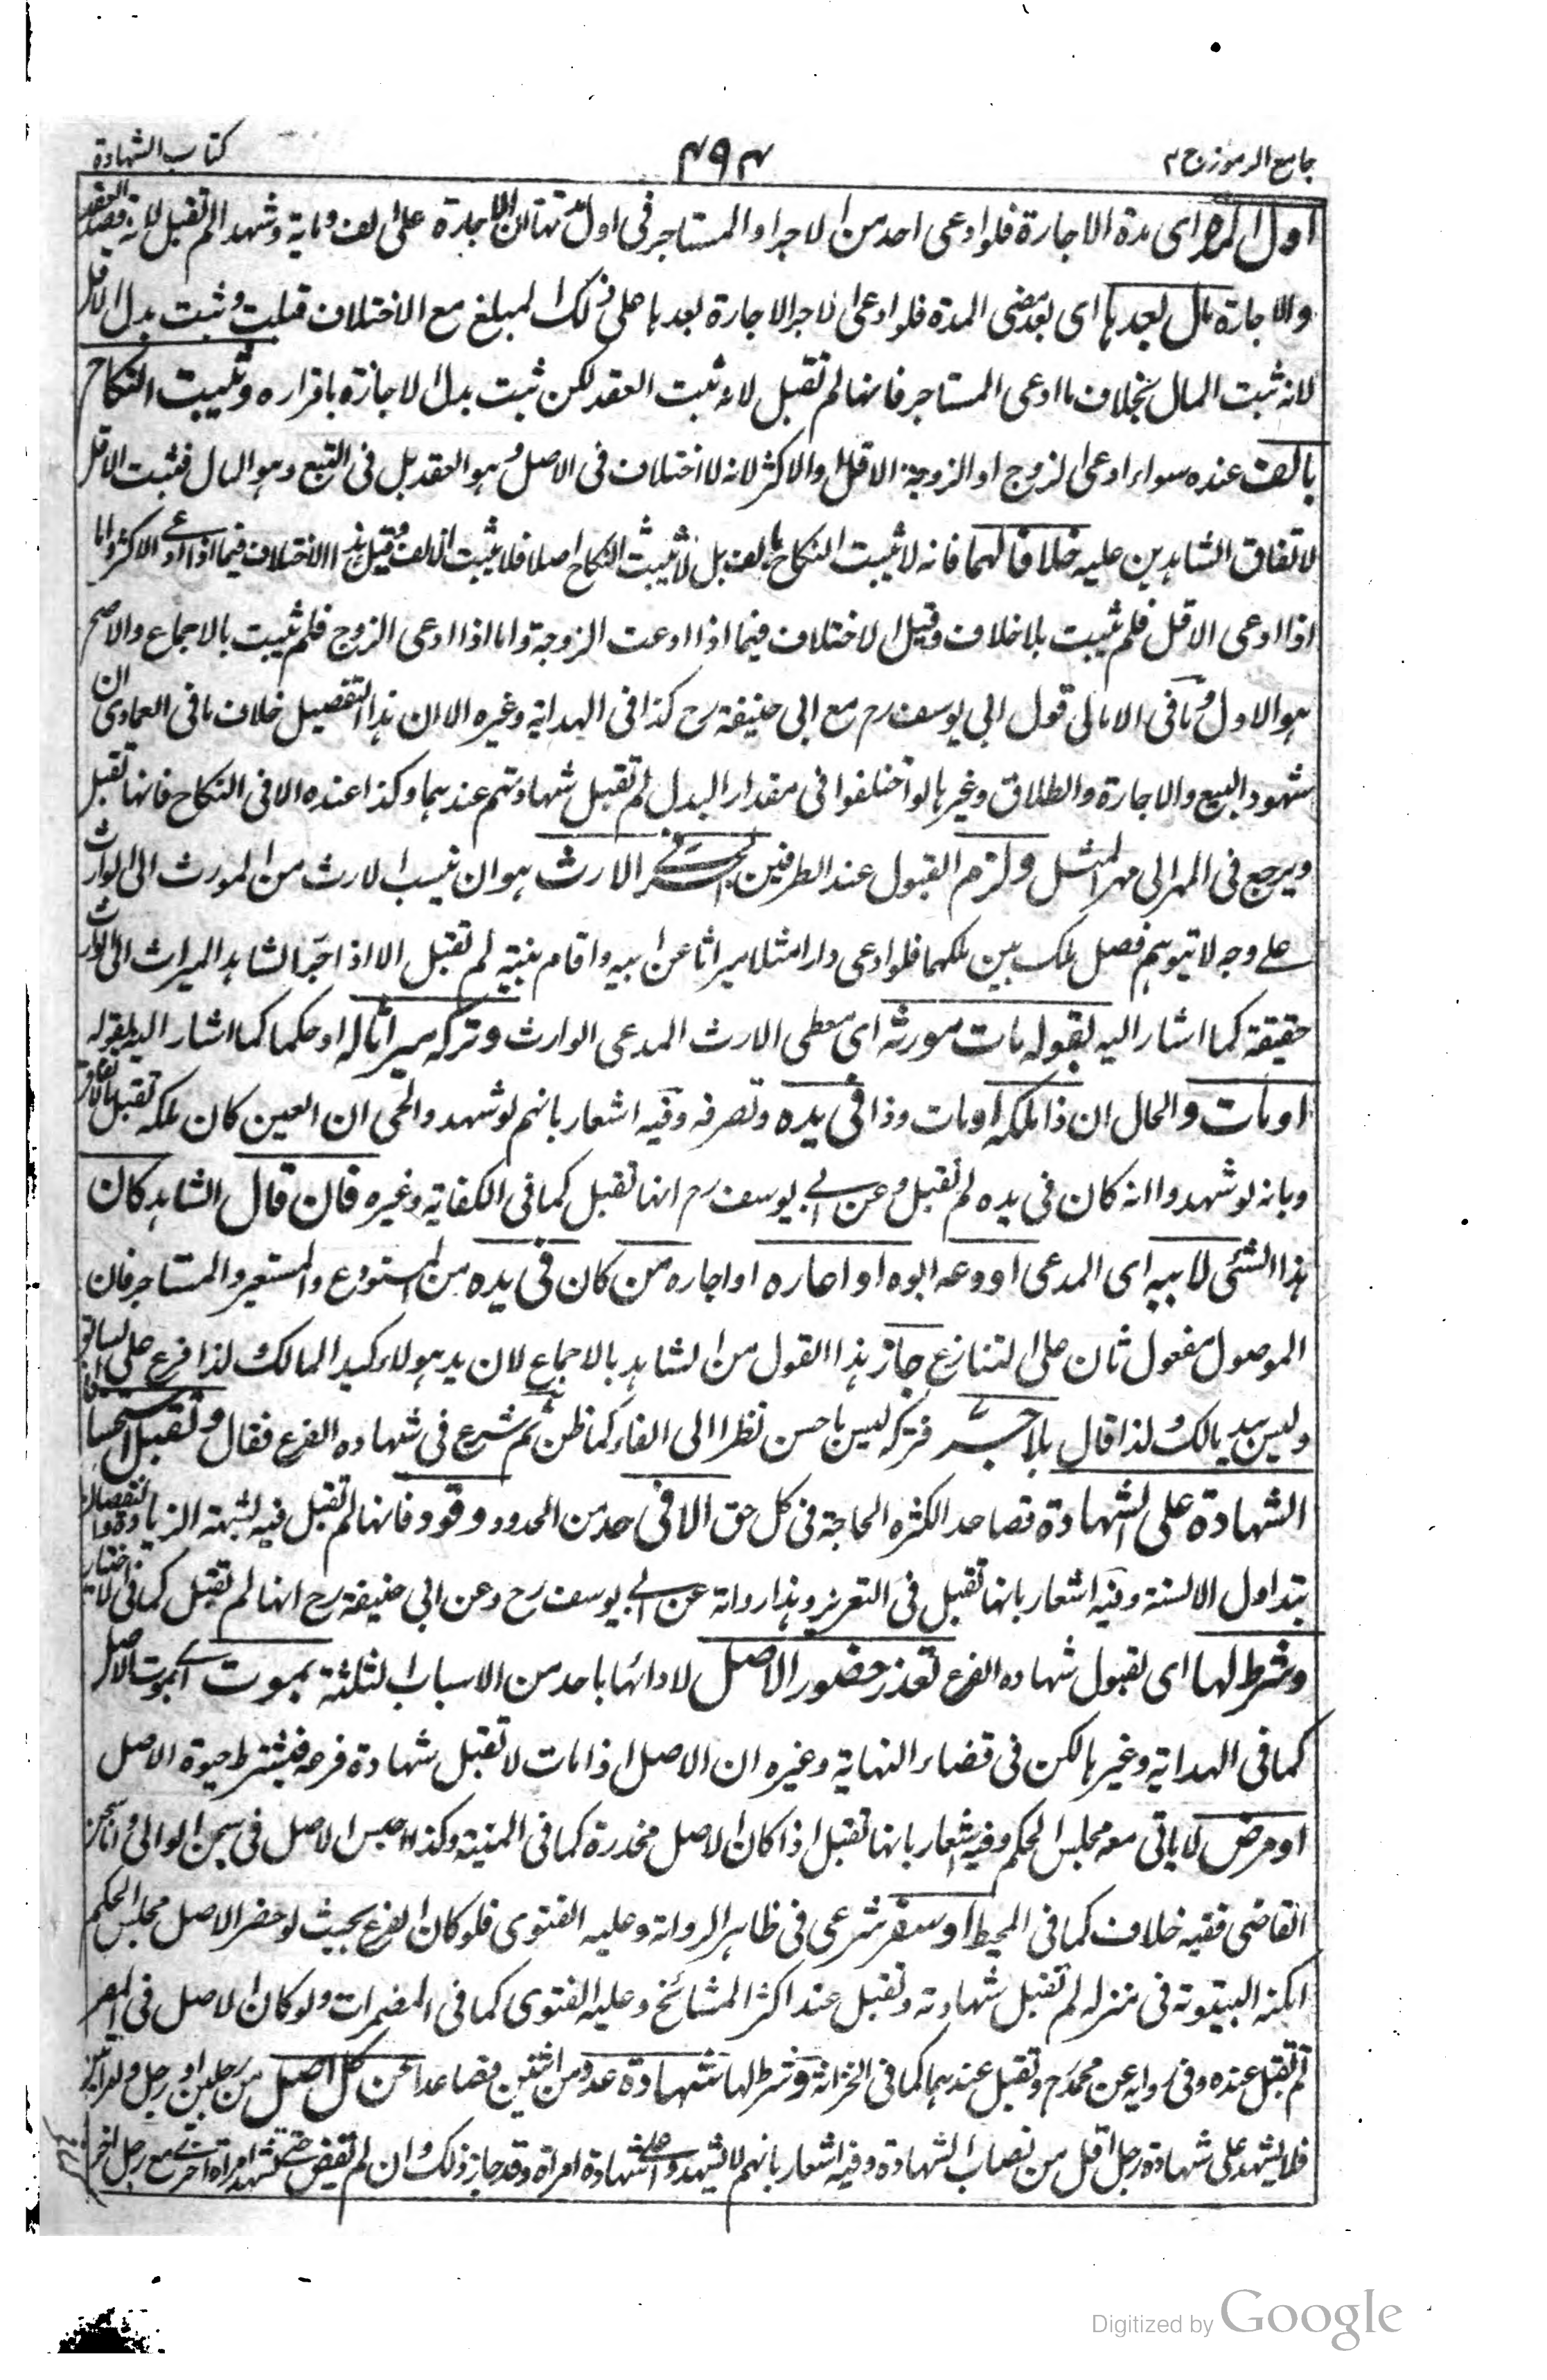 جامع الرموز ج ٢
٤٩٤
كتاب الشهادة
اول المدة اى مدة الاجارة فلو ادعى احد من الاجر او المستاجر فى اول مدتها ان الاجارة على الف ومائة وشهدا لم تقبل لانه قصد العقد
والاجارة مال بعدها اى بعد مضى المدة فلو ادعى الاجر الاجارة بعدها على ذلك المبلغ مع الاختلاف قبلت وثبت بدل الاقل
لانه ثبت المال بخلاف ما ادعى المستاجر فانها لم تقبل لانه ثبت العقد لكن ثبت بدل الاجازة باقراره وتثبت النكاح
بالف عنده سواء ادعى الزوج او الزوجة الاقل او الاكثر لانه لا اختلاف فى الاصل وهو العقد بل فى التبع وهو المال فثبت الاقل
لاتفاق الشاهدين عليه خلافا لهما فانه لا ثبت النكاح بالف بل لا يثبت النكاح اصلا فلا يثبت الالف وقيل هذا الاختلاف فيما اذا ادعى الاكثر واما
اذا ادعى الاقل فلم ثبت بلا خلاف وقيل الاختلاف فيما اذا ادعت الزوجة واما اذا ادعى الزوج فلم ثبت بالاجماع والاصح
هو الاول وما فى الامالى قول ابى يوسف رح مع ابى حنيفة رح كذا فى الهداية وغيره الا ان هذا التفصيل خلاف ما فى العمادى ان
شهود البيع والاجارة والطلاق وغيرها لو اختلفوا فى مقدار البدل لم تقبل شهادتهم عندهما وكذا عنده الا فى النكاح فانها تقبل
ويرجع فى المهر الى مهر المثل ولزم القبول عند الطرفين الجر فى الارث هو ان ينسب الارث من المورث الى الوارث
على وجه لا يتوهم فصل ملك بين ملكهما فلو ادعى دارا مثلا ميراثا عن ابيه واقام بينة لم تقبل الا اذا جر الشاهد الميراث الى الوارث
حقيقة كما اشار اليه بقوله مات مورثه اى معطى الارث المدعى الوارث وتركه ميراثا له او حكما كما اشار اليه بقوله
او مات والحال ان ذا ملكه او مات وذا فى يده وتصرفه وفيه اشعار بانهم لو شهدوا لحى ان العين كان ملكه تقبل بالاتفاق
وبانه لو شهدوا انه كان فى يده لم تقبل وعن ابى يوسف رح انها تقبل كما فى الكفاية وغيره فان قال الشاهد كان
هذا الشئ لابيه اى المدعى اودعه ابوه او اعاره او اجاره من كان فى يده من المستودع والمستعير والمستاجر فان
الموصول مفعول ثان على التنازع جاز هذا القول من الشاهد بالاجماع لان يد هولاء كيد المالك لذا فرع على
وليس بيد مالك لذا قال بلا جر فتركه ليس باحسن نظرا الى الفاء كما ظن ثم شرع فى شهادة الفرع فقال وتقبل استحسانا
الشهادة على الشهادة تصاعد الكثرة الحاجة فى كل حق الا فى حد من الحدود وقود فانها لم تقبل فيه لشبهة الزيادة والنقصان
بتداول الالسنة وفيه اشعار بانها تقبل فى التعزير وهذا رواية عن ابى يوسف رح وعن ابى حنيفة رح انها لم تقبل كما فى الاختيار
وشرط لها اى لقبول شهادة الفرع تعذر حضور الاصل لادائها باحد من الاسباب الثلثة بموت اى بموت الاصل
كما فى الهداية وغيرها لكن فى قضاء النهاية وغيره ان الاصل اذا مات لا تقبل شهادة فرعه فيشترط حيوة الاصل
او مرض لا ياتى معه مجلس الحكم وفيه اشعار بانها تقبل اذا كان الاصل مخدرة كما فى المنية وكذا حبس الاصل فى سجن الوالى واما سجن
القاضى ففيه خلاف كما فى المحيط او سفر شرعى فى ظاهر الرواية وعليه الفتوى فلو كان الفرع بحيث لو حضر الاصل مجلس الحكم
امكنه البيتوتة فى منزله لم تقبل شهادته وتقبل عند اكثر المشائخ وعليه الفتوى كما فى المضمرات ولو كان الاصل فى المصر
لم تقبل عنده وفى رواية عن محمد رح وتقبل عندهما كما فى الخزانة وشرط لها شهادة عدد من اثنين فصاعدا عن كل اصل من رجلين او رجل وامراتين
فلا يشهد على شهادة رجل اقل من نصاب الشهادة وفيه اشعار بانهم لا يشهدوا على شهادة امراة وقد جاز ذلك وان لم تقض حتى تشهد امراة اخرى مع رجل اخر
Digitized by Google